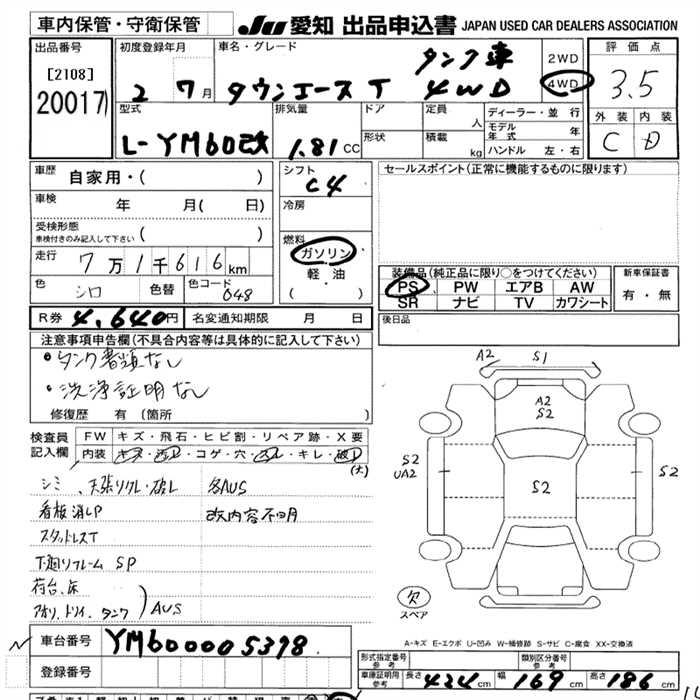 車内保管・守衛保管
JU 愛知 出品申込書 JAPAN USED CAR DEALERS ASSOCIATION
出品番号
[2108]
20017
初度登録年月
2 7月
車名・グレード
タンク車
タウンエース T 4WD
2WD
4WD
評価点
3.5
外装 内装
C D
型式
L-YM60改
排気量
1.81 CC
ドア
形状
定員 人
積載 kg
ディーラー・並行
モデル年式 年
ハンドル 左・右
車歴 自家用・( )
車検 年 月( 日)
受検形態
車検付きのみ記入して下さい ( )
走行 7万1千616km
色 シロ 色替 色コード 048
シフト
C4
冷房
燃料
ガソリン
軽・油
(・ )
セールスポイント(正常に機能するものに限ります)
装備品(純正品に限り○をつけてください)
PS PW エアB AW
SR ナビ TV カワシート
新車保証書
有・無
R券 4,640円 名変通知期限 月 日
後日品
注意事項申告欄(不具合内容等は具体的に記入して下さい)
・タンク書類なし
・洗浄証明なし
修復歴 有(箇所 )
検査員記入欄
FW キズ・飛石・ヒビ割・リペア跡・X要
内装 キズ・汚レ・コゲ・穴・スレ・キレ・破レ
(大)
シミ、天張リクレ・破レ 各AUS
看板消しP 改内容不明
スタットレスT
下廻リフレーム SP
荷台、床
アオリ、トイ、タンク ) AUS
A2 S1
A2
S2
S2
UA2
S2
S2
欠
スペア
A-キズ E-エクボ U-凹み W-補修跡 S-サビ C-腐食 XX-交換済
車台番号 YM600005398
登録番号
形式指定番号 参考
類別区分番号 参考
車庫証明用 参考 長さ 424cm 幅 169cm 高さ 186cm